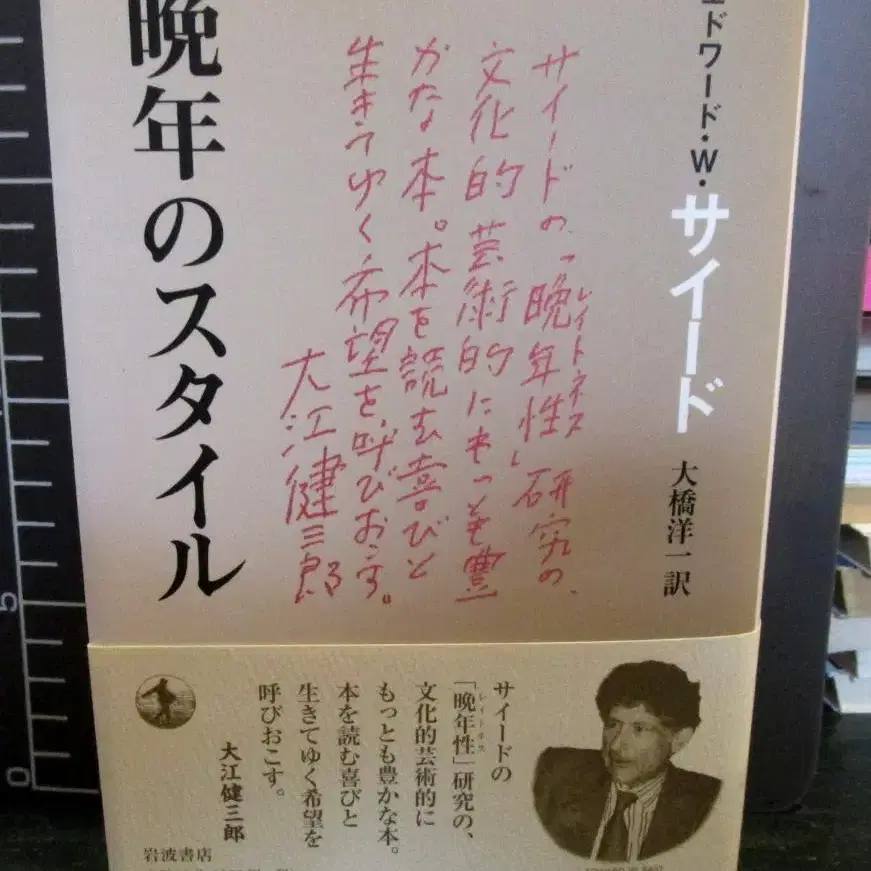 エドワード・W・サイード
大橋洋一訳
サイードの「晩年性」研究の、
レイトネス
文化的芸術的にもっとも豊
かな本。本を読む喜びと
生きてゆく希望を呼びおこす。
大江健三郎
晩年のスタイル
サイードの
「晩年性」研究の、
レイトネス
文化的芸術的に
もっとも豊かな本。
本を読む喜びと
生きてゆく希望を
呼びおこす。
大江健三郎
岩波書店
5
0